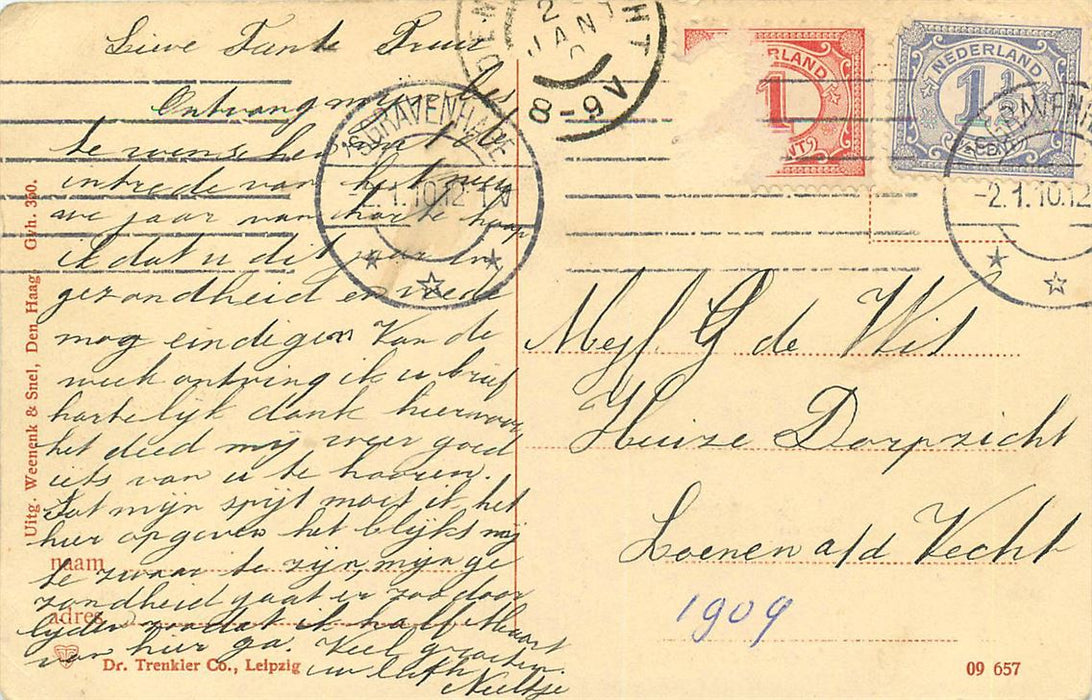 Lieve Tante Truus
Ontvang mij
te wenschen
intrede van het nieu
we jaar van harte hoop
ik dat u dit jaar in
gezondheid en vrede
mog eindigen Van de
week ontving ik u brief
hartelijk dank hiervoor
het deed mij weer goed
iets van u te hooren.
Tot mijn spijt moet ik het
hier opgeven het blijkt mij
te zwaar te zijn, mijn ge
zondheid gaat er zoodoor
lijden zoodat ik half Maart
van hier ga. Veel groeten
Neeltje
naam
adres
Uitg. Weenenk & Snel, Den Haag. Gvh. 360.
Dr. Trenkler Co., Leipzig
'SGRAVENHAGE
2.1.10.12-1V
JAN
8-9V
HT
RLAND
1
CENT
NEDERLAND
1½
CENT
GRAVENH
-2.1.10.12
Mejf G de Wit
Huize Dorpzicht
Loenen a/d Vecht
1909
09 657